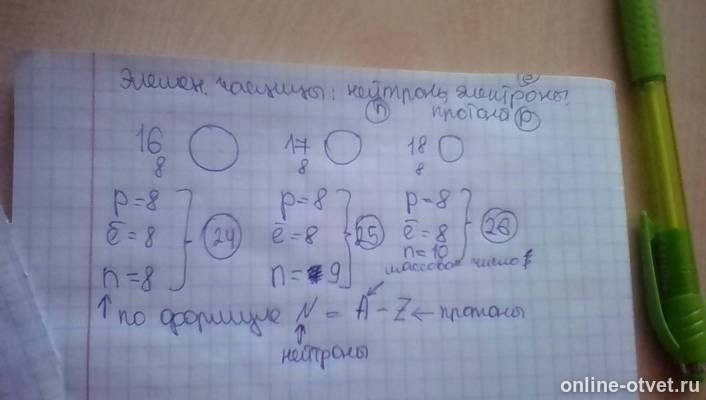 Элемен. частицы: нейтроны, электроны, (e)
(n) протоны (p)
16 8 O 17 8 O 18 8 O
p=8 p=8 p=8
ē=8 } 24 ē=8 } 25 ē=8 } 26
n=8 n=9 n=10
массовое число
↑ по формуле N = A - Z ← протоны
↑
нейтроны
online-otvet.ru